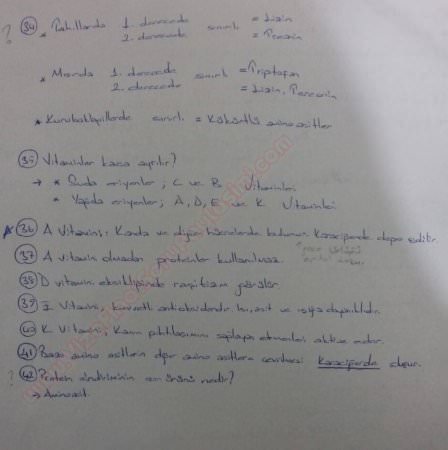 ? 34 * Tahıllarda 1. derecede sınırlı = Lizin
2. derecede = Treonin
* Mısırda 1. derecede sınırlı = Triptofan
2. derecede = Lizin, Treonin
* Kurubaklagillerde sınırlı = Kükürtlü amino asitler
35 Vitaminler kaça ayrılır?
→ * Suda eriyenler; C ve B Vitaminleri
* Yağda eriyenler; A, D, E ve K Vitaminleri
* 36 A Vitamini. Kanda ve diğer hücrelerde bulunur Karaciğerde depo edilir.
37 A vitamini olmadan proteinler kullanılmaz.
38 D vitamin eksikliğinde raşitizm görülür.
39 E Vitamini, kuvvetli antioksidandır ısı, asit ve ışığa dayanıklıdır.
40 K Vitamini, Kanın pıhtılaşmasını sağlayan etmenleri aktive eder.
41 Bazı amino asitlerin diğer amino asitlere çevrilmesi Karaciğerde oluşur.
? 42 Protein sindiriminin son ürünü nedir?
→ Aminoasit.